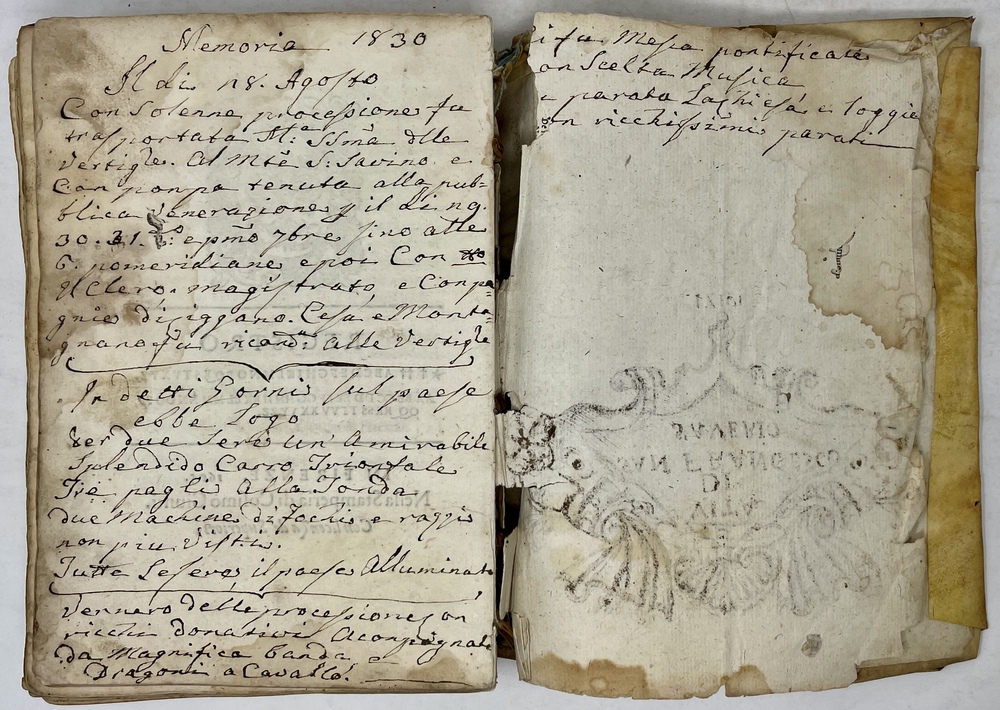 Memoria 1830
Il di 28. Agosto
Con Solenne processione fu
trasportata M.ª SSma dlle
Vertighe. Al Mte S. Savino e
Con ponpa tenuta alla pub=
blica Venerazione il di 29.
30. 31. e pmo 7bre sino alle
6. pomeridiane e poi Con
Il Clero. magistrato e Conpa=
gnie di Siggano. Cesa e Monta=
gnano fu ricand.ª alle Vertighe
In detti Gorni sul paese
ebbe Logo
Per due Sere un' Amirabile
Splendido Carro Trionfale
Tre pagli Alla Tonda
due Machine di fochi e raggi
non piu Visti.
Tutte Le Sere il paese Alluminato
Vennero delle processione con
ricchi donativi Aconpagnate
da Magnifica banda e
Dragoni a Cavallo.
i fu Mesa pontificale
on Scelta Musica
e parata La Chiesa e loggie
on ricchissimi parati
VITA
DI
SAN FRANCESCO
SAVERIO